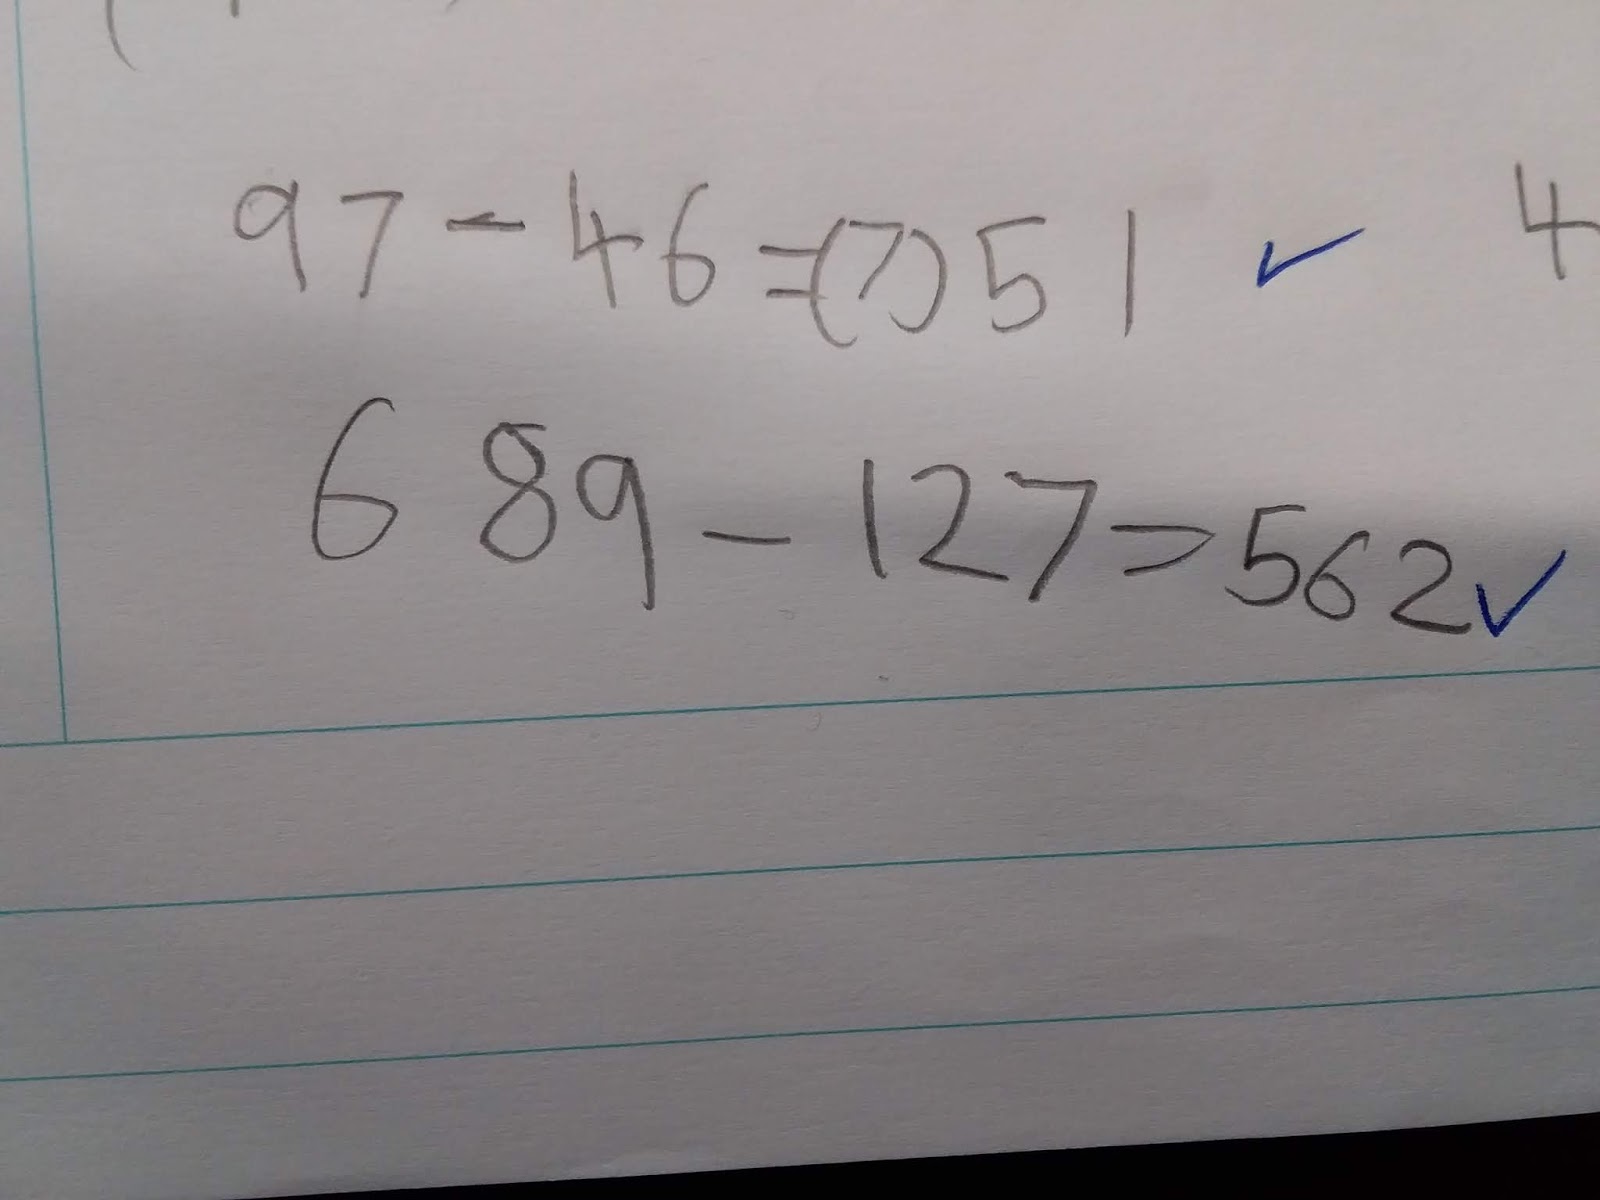 97 - 46 =(7) 51 ✓ 4
689 - 127 = 562 ✓